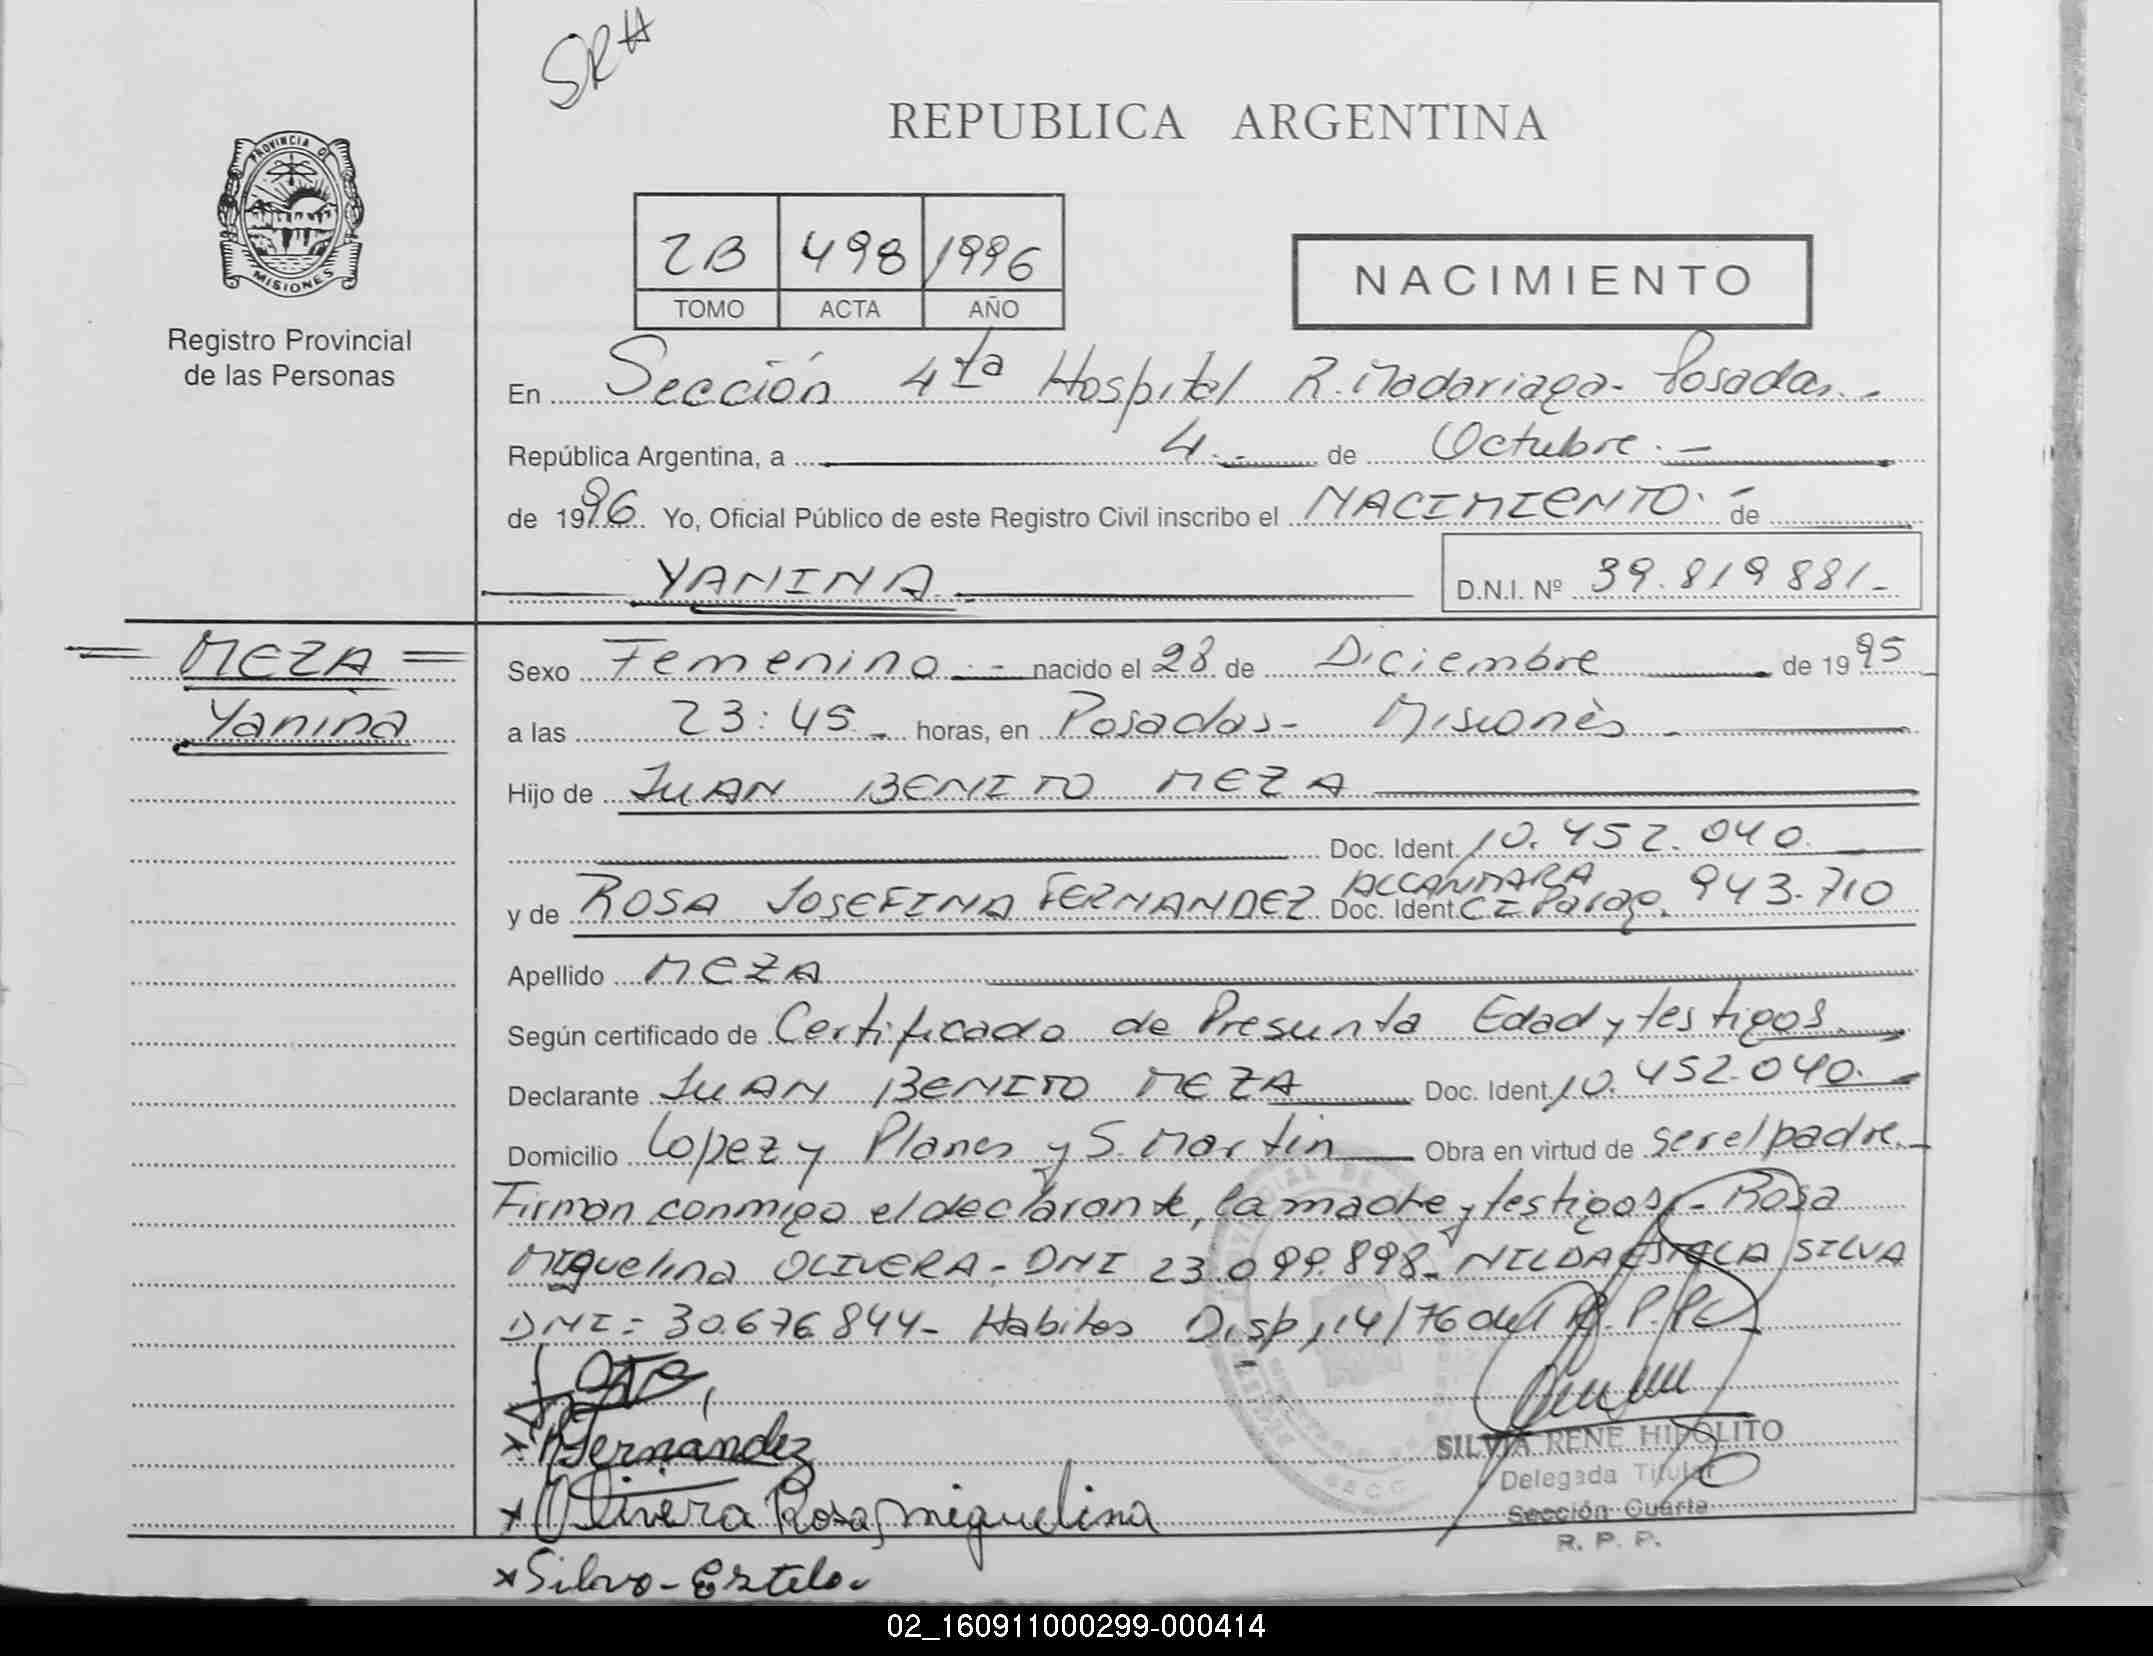 SRH
REPUBLICA ARGENTINA
PROVINCIA D
MISIONES
Registro Provincial
de las Personas
2B 498 1996
TOMO ACTA AÑO
NACIMIENTO
En Sección 4ta Hospital R. Madariaga - Posadas.-
República Argentina, a 4.- de Octubre.-
de 1996 Yo, Oficial Público de este Registro Civil inscribo el NACIMIENTO.- de
YANINA
D.N.I. Nº 39.819881-
= MEZA =
Yanina
Sexo Femenino.- nacido el 28 de Diciembre de 1995
a las 23:45.- horas, en Posadas- Misiones.-
Hijo de JUAN BENITO MEZA
Doc. Ident. 10.452.040.
y de ROSA JOSEFINA FERNANDEZ ALCANTARA Doc. Ident. CI Parag. 943.710
Apellido MEZA
Según certificado de Certificado de Presunta Edad y testigos
Declarante JUAN BENITO MEZA Doc. Ident. 10.452.040.
Domicilio Lopez y Planes y S. Martin Obra en virtud de ser el padre.-
Firman conmigo el declarante, la madre y testigos.- Rosa
Miguelina OLIVERA - DNI 23.099.898- NILDA ESTELA SILVA
DNI= 30.676.844- Habiles Disp, 14/76 del R.P.P.
x RFernandez
x Olivera Rosa, miguelina
x Silva - Estela
SILVIA RENE HIPOLITO
Delegada Titular
Sección Cuarta
R. P. P.
02_160911000299-000414